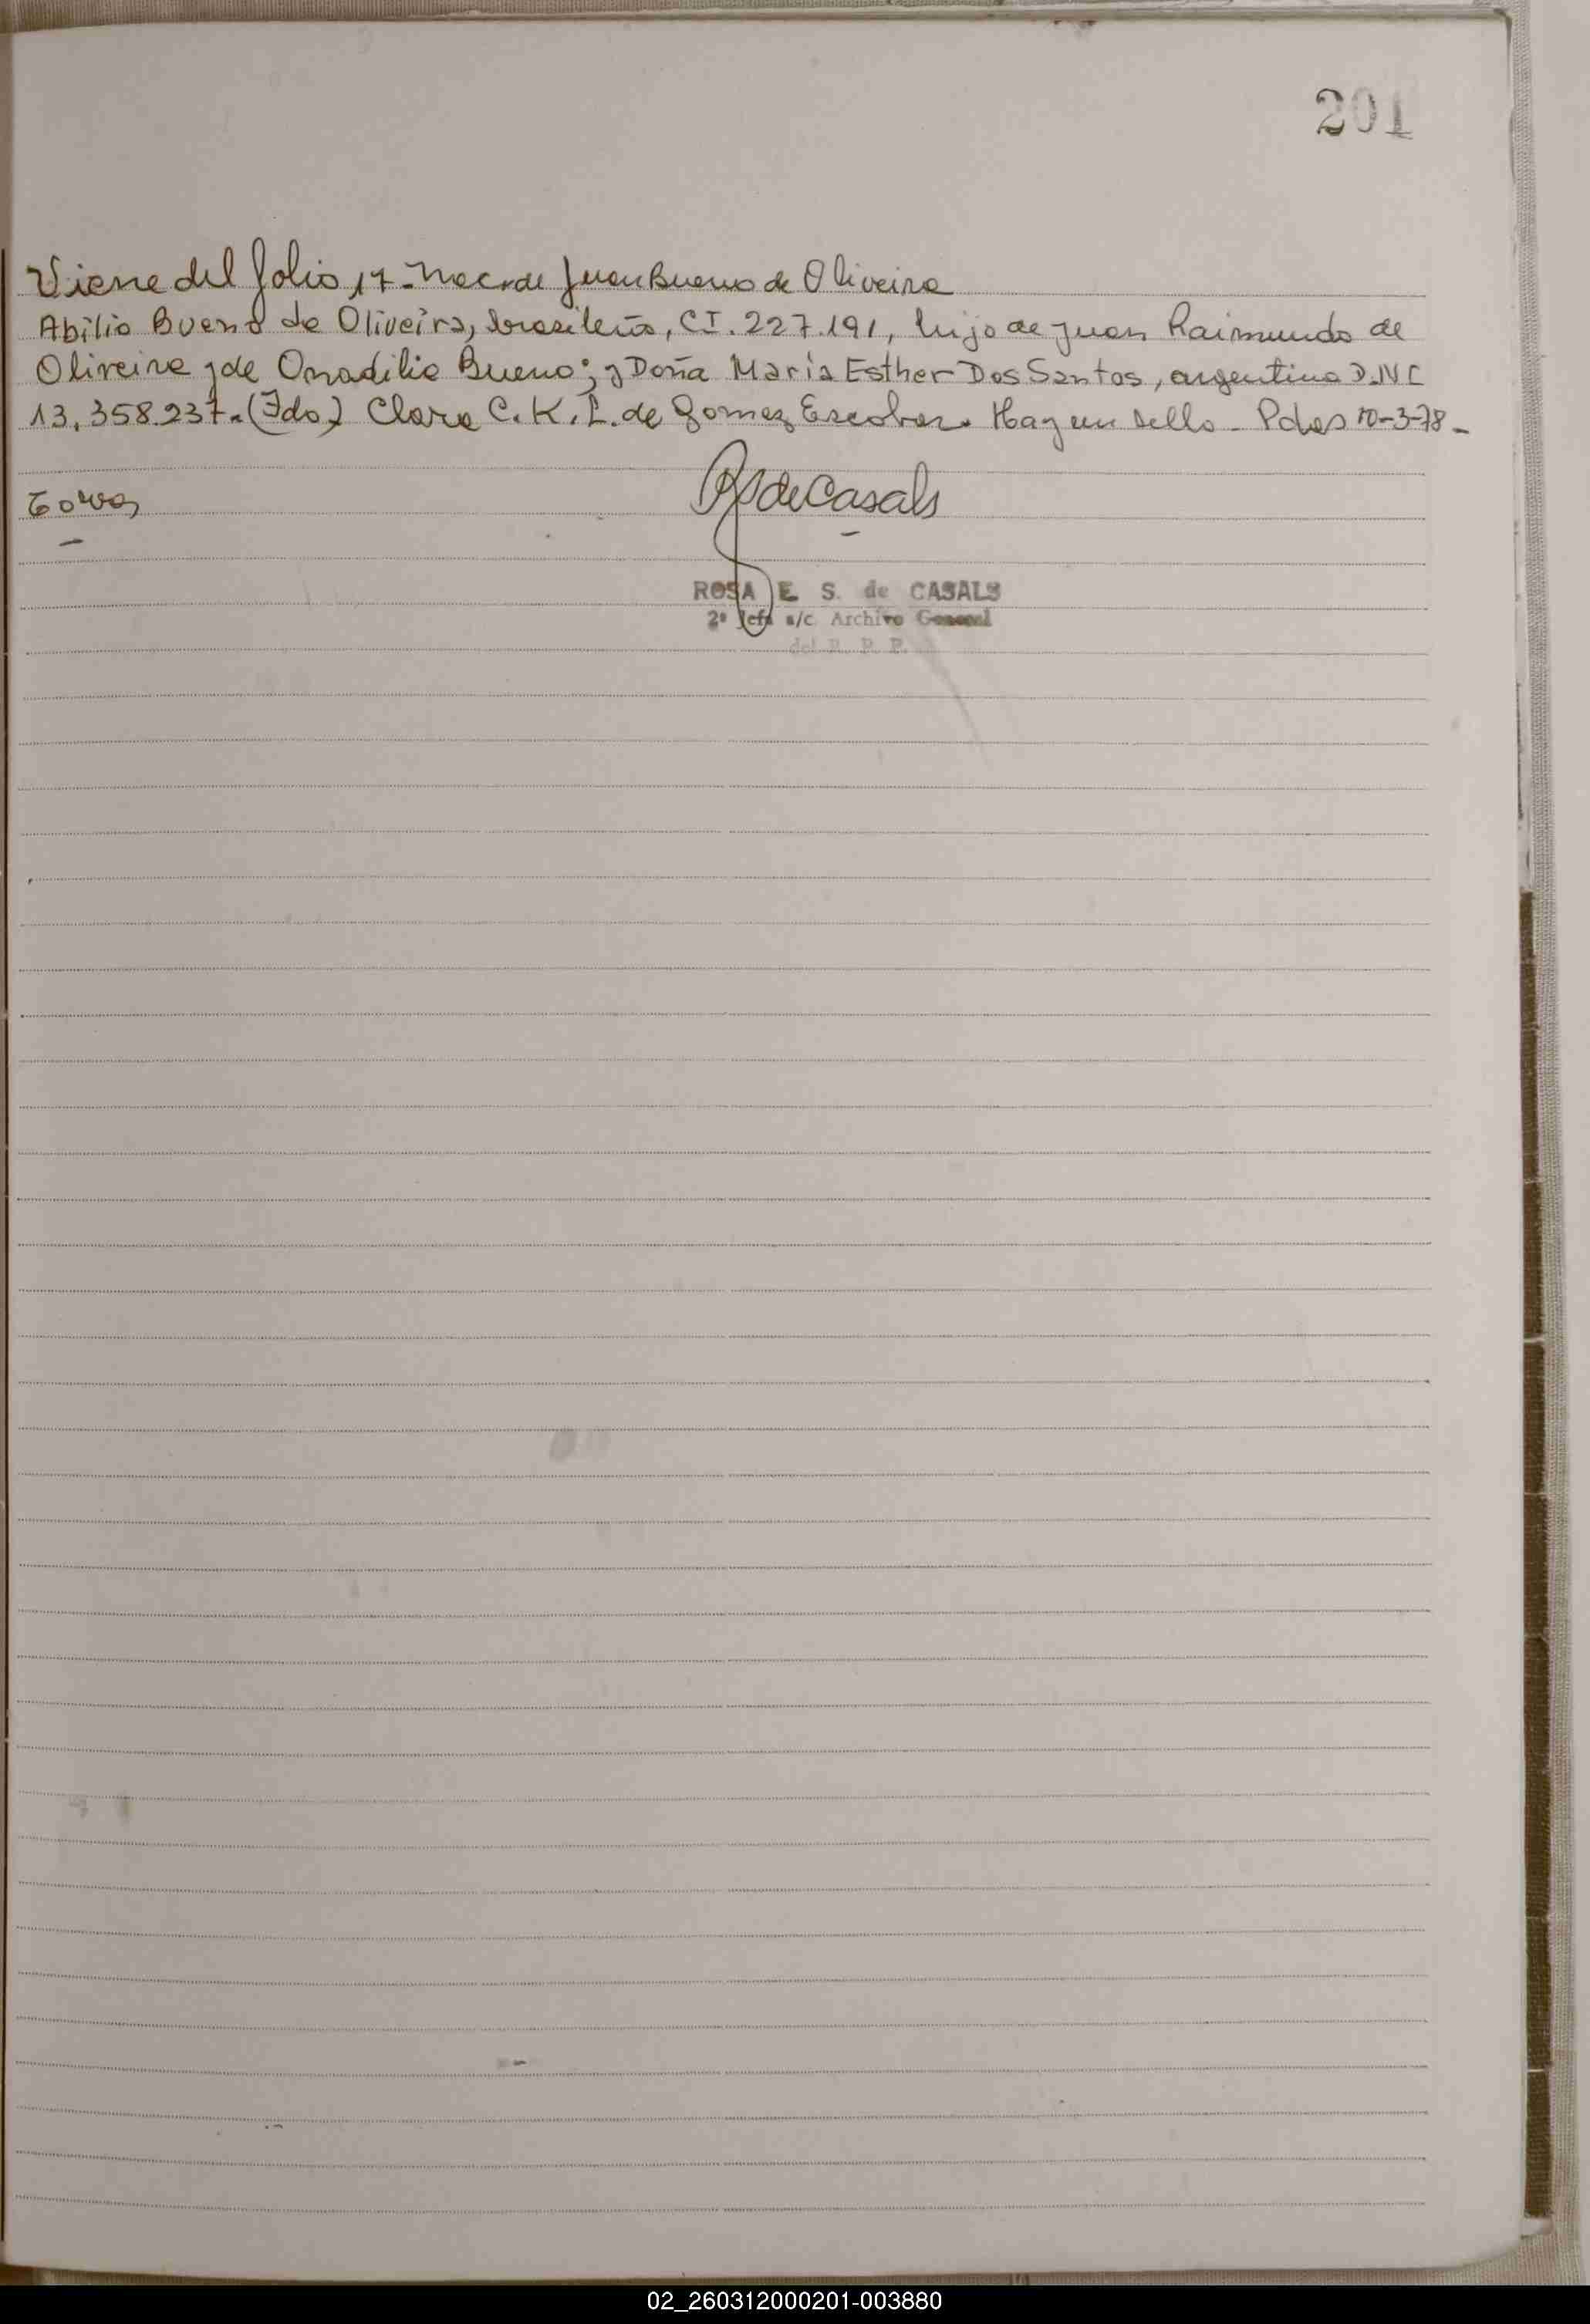 201
Viene del folio 17 - Nac. de Juan Bueno de Oliveira
Abilio Bueno de Oliveira, brasileño, CI. 227.191, hijo de Juan Raimundo de
Oliveira y de Onadilia Bueno; y Doña María Esther Dos Santos, argentina D.N.I
13.358.237.- (Fdo) Clara C. K. L. de Gomez Escobar. Hay un sello - Pdas 10-3-78 -
RS de Casals
ROSA E. S. de CASALS
2ª Jefa a/c. Archivo General
del R. P. P.
02_260312000201-003880